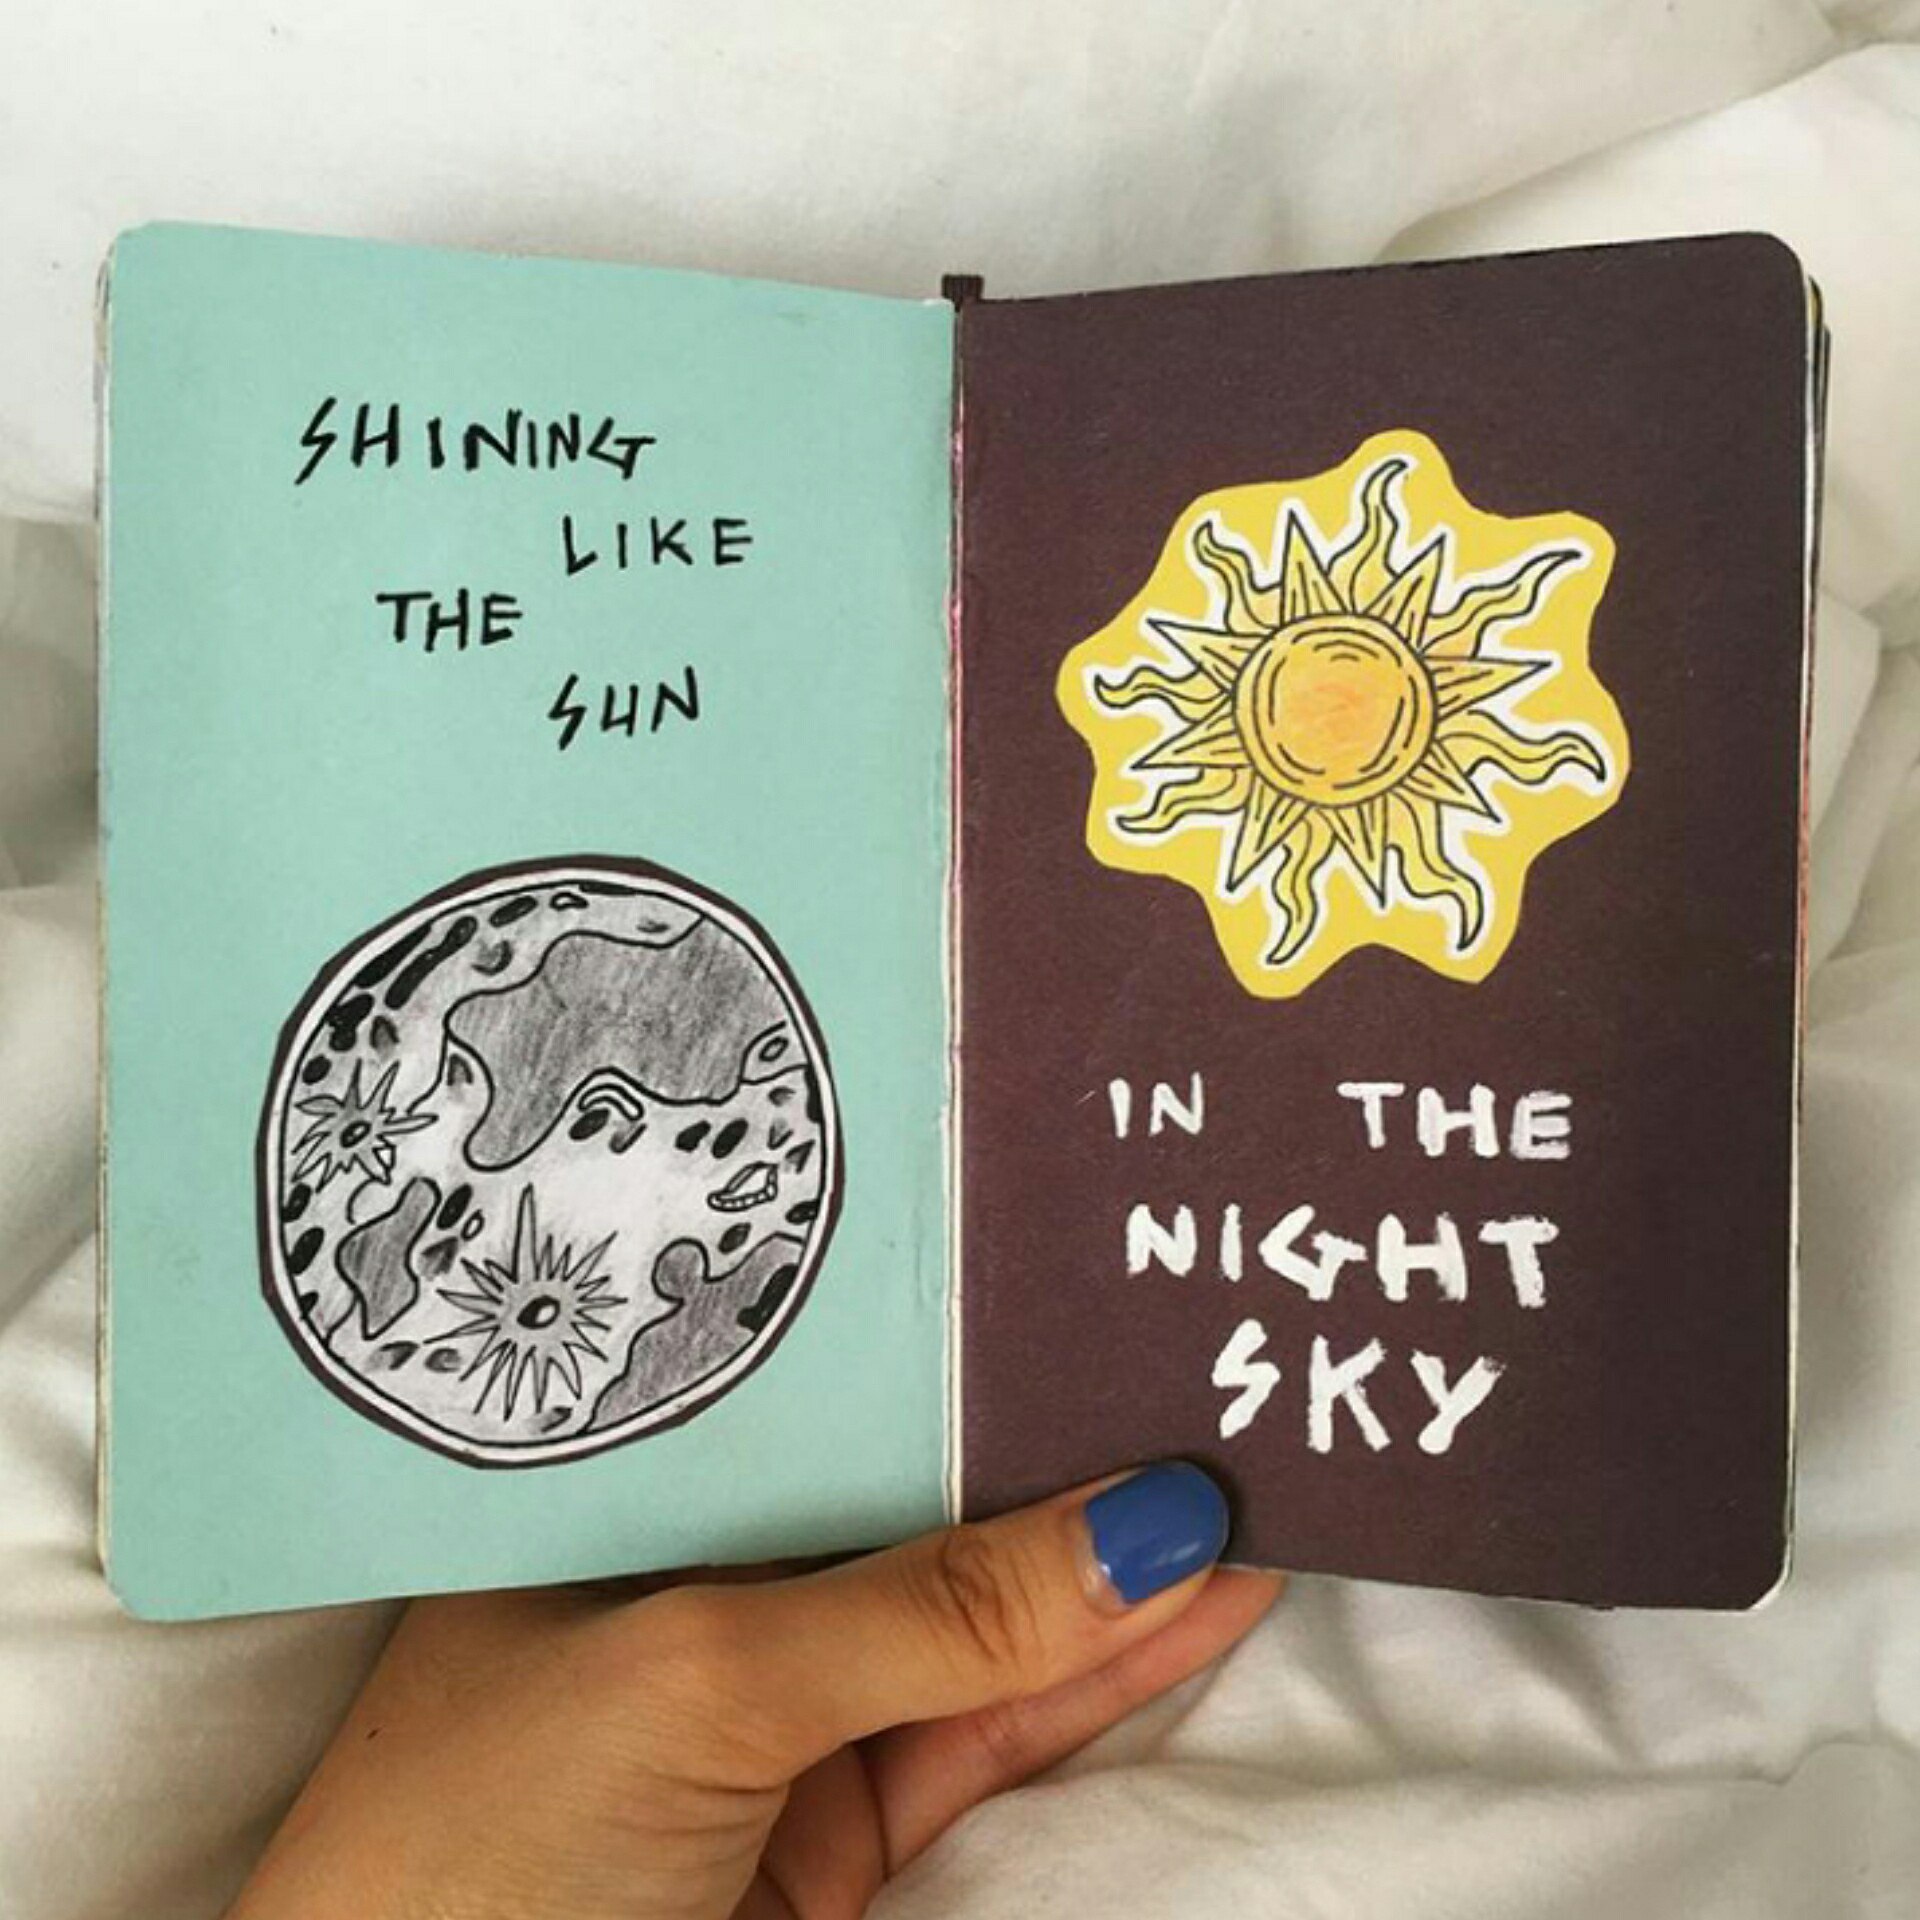 SHINING
LIKE
THE
SUN
IN THE
NIGHT
SKY